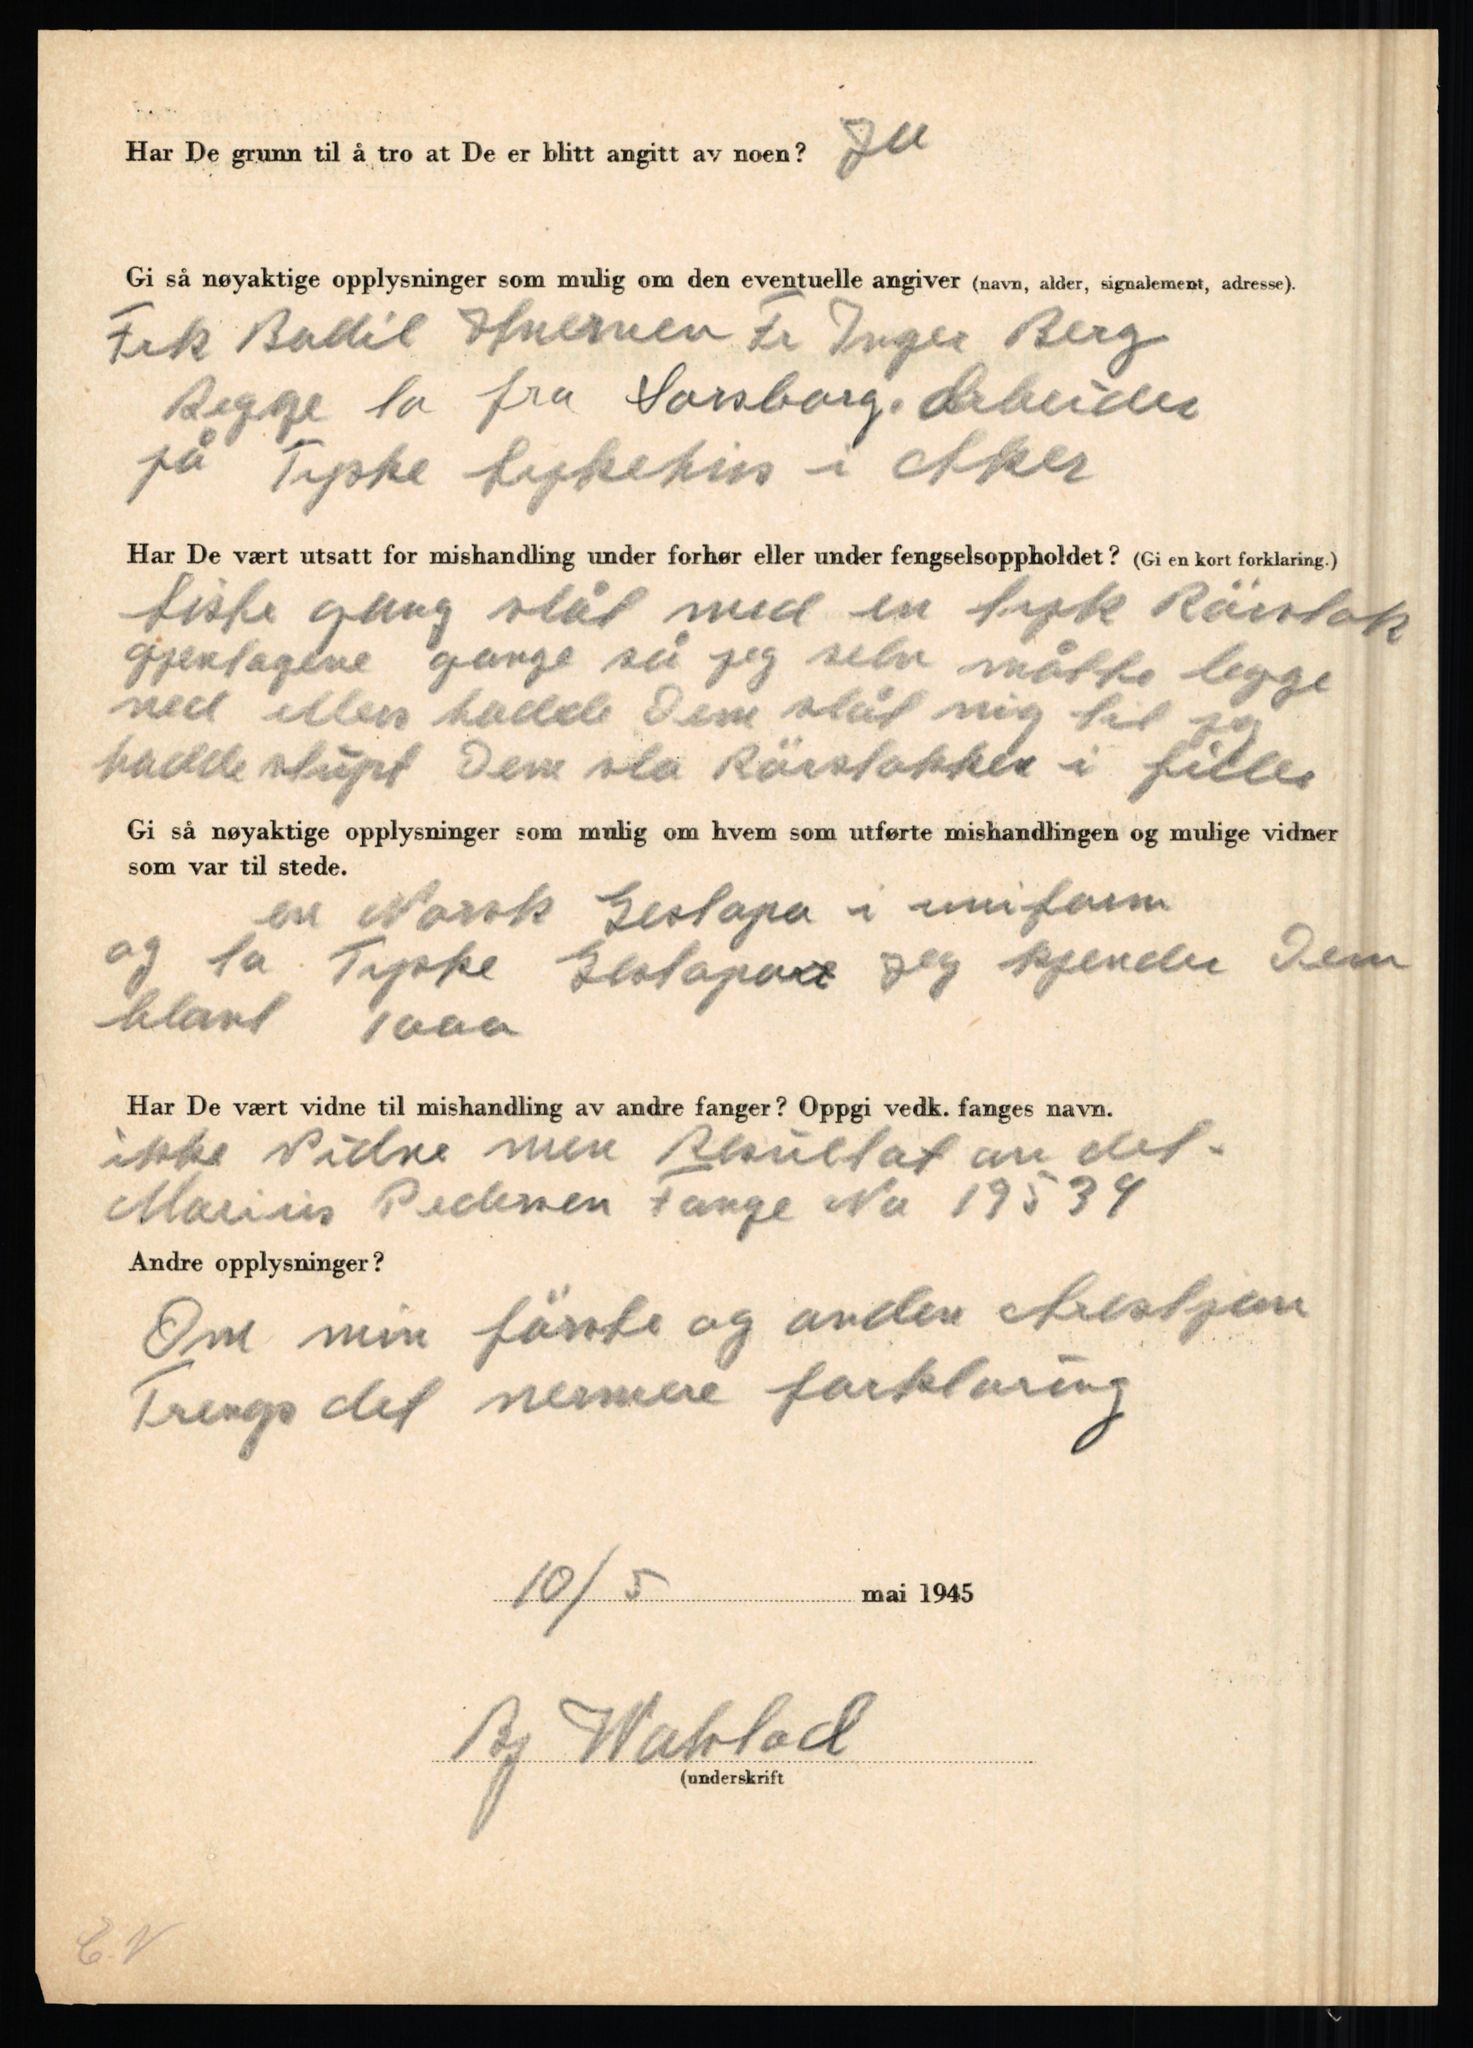 Har De grunn til å tro at De er blitt angitt av noen? Ja
Gi så nøyaktige opplysninger som mulig om den eventuelle angiver (navn, alder, signalement, adresse).
Frk Bodil Fr Inger Berg
Begge to fra Sarsborg. Arbeider
på Tyske sykehus i Aker
Har De vært utsatt for mishandling under forhør eller under fengselsoppholdet? (Gi en kort forklaring.)
Siste gang slåt med en tyk Rörstok
gjentagene gange så jeg selv måtte legge
ned ellers hadde Dem slåt mig til jeg
hadde stupt Dem slo Rörstokken i filler
Gi så nøyaktige opplysninger som mulig om hvem som utførte mishandlingen og mulige vidner
som var til stede.
en Norsk Gestapo i uniform
og to Tyske Jeg kjender Dem
blant 1000
Har De vært vidne til mishandling av andre fanger? Oppgi vedk. fanges navn.
ikke Vidne men Resultat av det.
Marius Pedersen Fange No 19539
Andre opplysninger?
Om min förste og anden
Trengs det nermere forklaring
10/5 mai 1945
Bj Wahlad
(underskrift
E.N